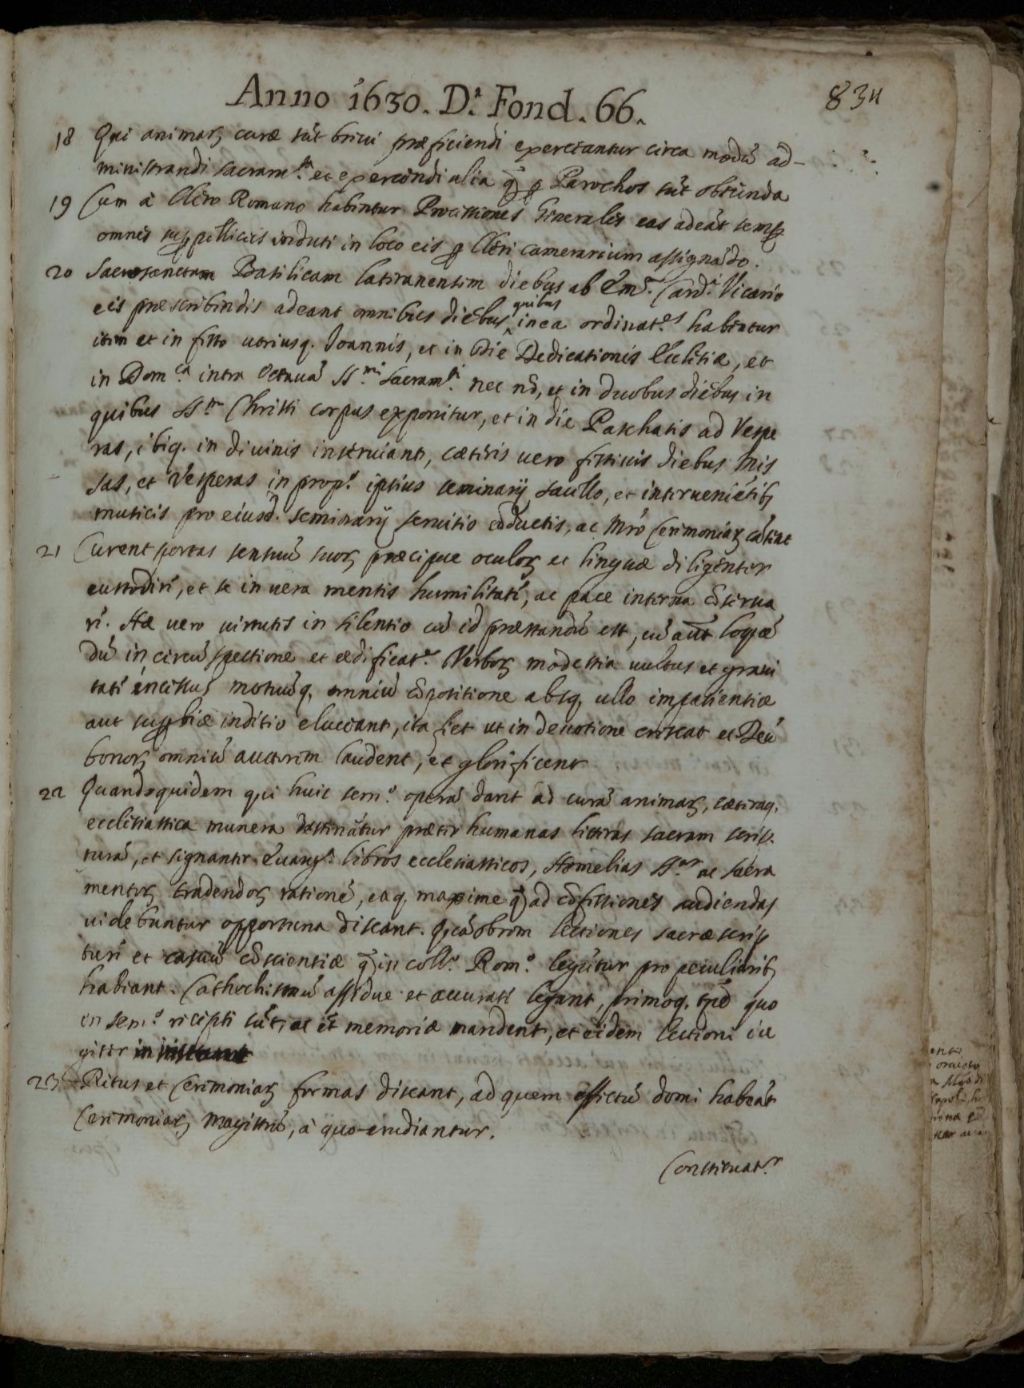 Anno 1630. D.ª Fond. 66.
834
18 Qui animaꝝ curæ sūt brevi præficiendi exercẽantur circa modū ad-
ministrandi sacram.ta et exercẽdi alia q̃ ꝑ Parochos sūt obeunda
19 Cum à Clero Romano habentur Processiones Generales eas adeāt semꝑ
omnes suꝑpelliceis induti in loco eis ꝑ Cleri camerarium assignādo.
20 Sacrosanctam Basilicam lateranensem diebus ab Em.º Card.i Vicario
eis præscribendis adeant omnibus diebus quibus in ea ordinat.es habentur
item et in festo utriusq. Joannis, et in die Dedicationis Ecclesiæ, et
in Dom.ca intra Octavā SS.mi Sacram.ti nec nō, et in duobus diebus in
quibus SS.m Christi corpus exponitur, et in die Paschatis ad Vespe
ras, ibiq. in divinis inserviant, cæteris vero festivis diebus Mis
sas, et Vesperas in prop.º ipsius seminarij sacello, et interveniētibꝫ
musicis pro eiusd. seminarij servitio cōductis, ac Mrō Cerimoniaꝝ
21 Curent portas sensuū suoꝝ præcipue oculoꝝ ac linguæ diligenter
custodire, et se in vera mentis humilitate, ac pace interna cōserva
re. Hæ vero virtutes in silentio cū id præstandū est, cū aūt loquē
dū in circūspectione et ædificat.e Verboꝝ modestia vultus et gravi
tate incessus motuūq. omniū cōpositione absq. ullo impatientiæ
aut suꝑbiæ inditio eluceant, ita fiet ut in devotione crescat et Deū
bonoꝝ omniū auctorem laudent, et glorificent
22 Quandoquidem qui huic sem.º operā dant ad curā animaꝝ, cæteraq.
ecclesiastica munera destinātur præter humanas litteras sacram scrip
turā, et signanter Evang.a libros ecclesiasticos, Homelias SS.or ac sacra
mentoꝝ tradendoꝝ rationē, eaq. maxime q̃ ad cōfessiones audiendas
videbuntur opportuna discant. Quāobrem lectiones sacræ scrip
turæ et casuū cōscientiæ q̃ in coll.º Rom.º legūtur pro peculiaribꝫ
habeant. Cathechismū assidue et accurate legant, primoq. quo
in sem.º recepti sūt, ac memoriæ mandent, et eidem lectioni iu
giter
23 Ritus et Cerimoniaꝝ formas discant, ad quem effectū domi habeāt
Cerimoniaꝝ Magistrū, à quo erudiantur.
Conservat.r